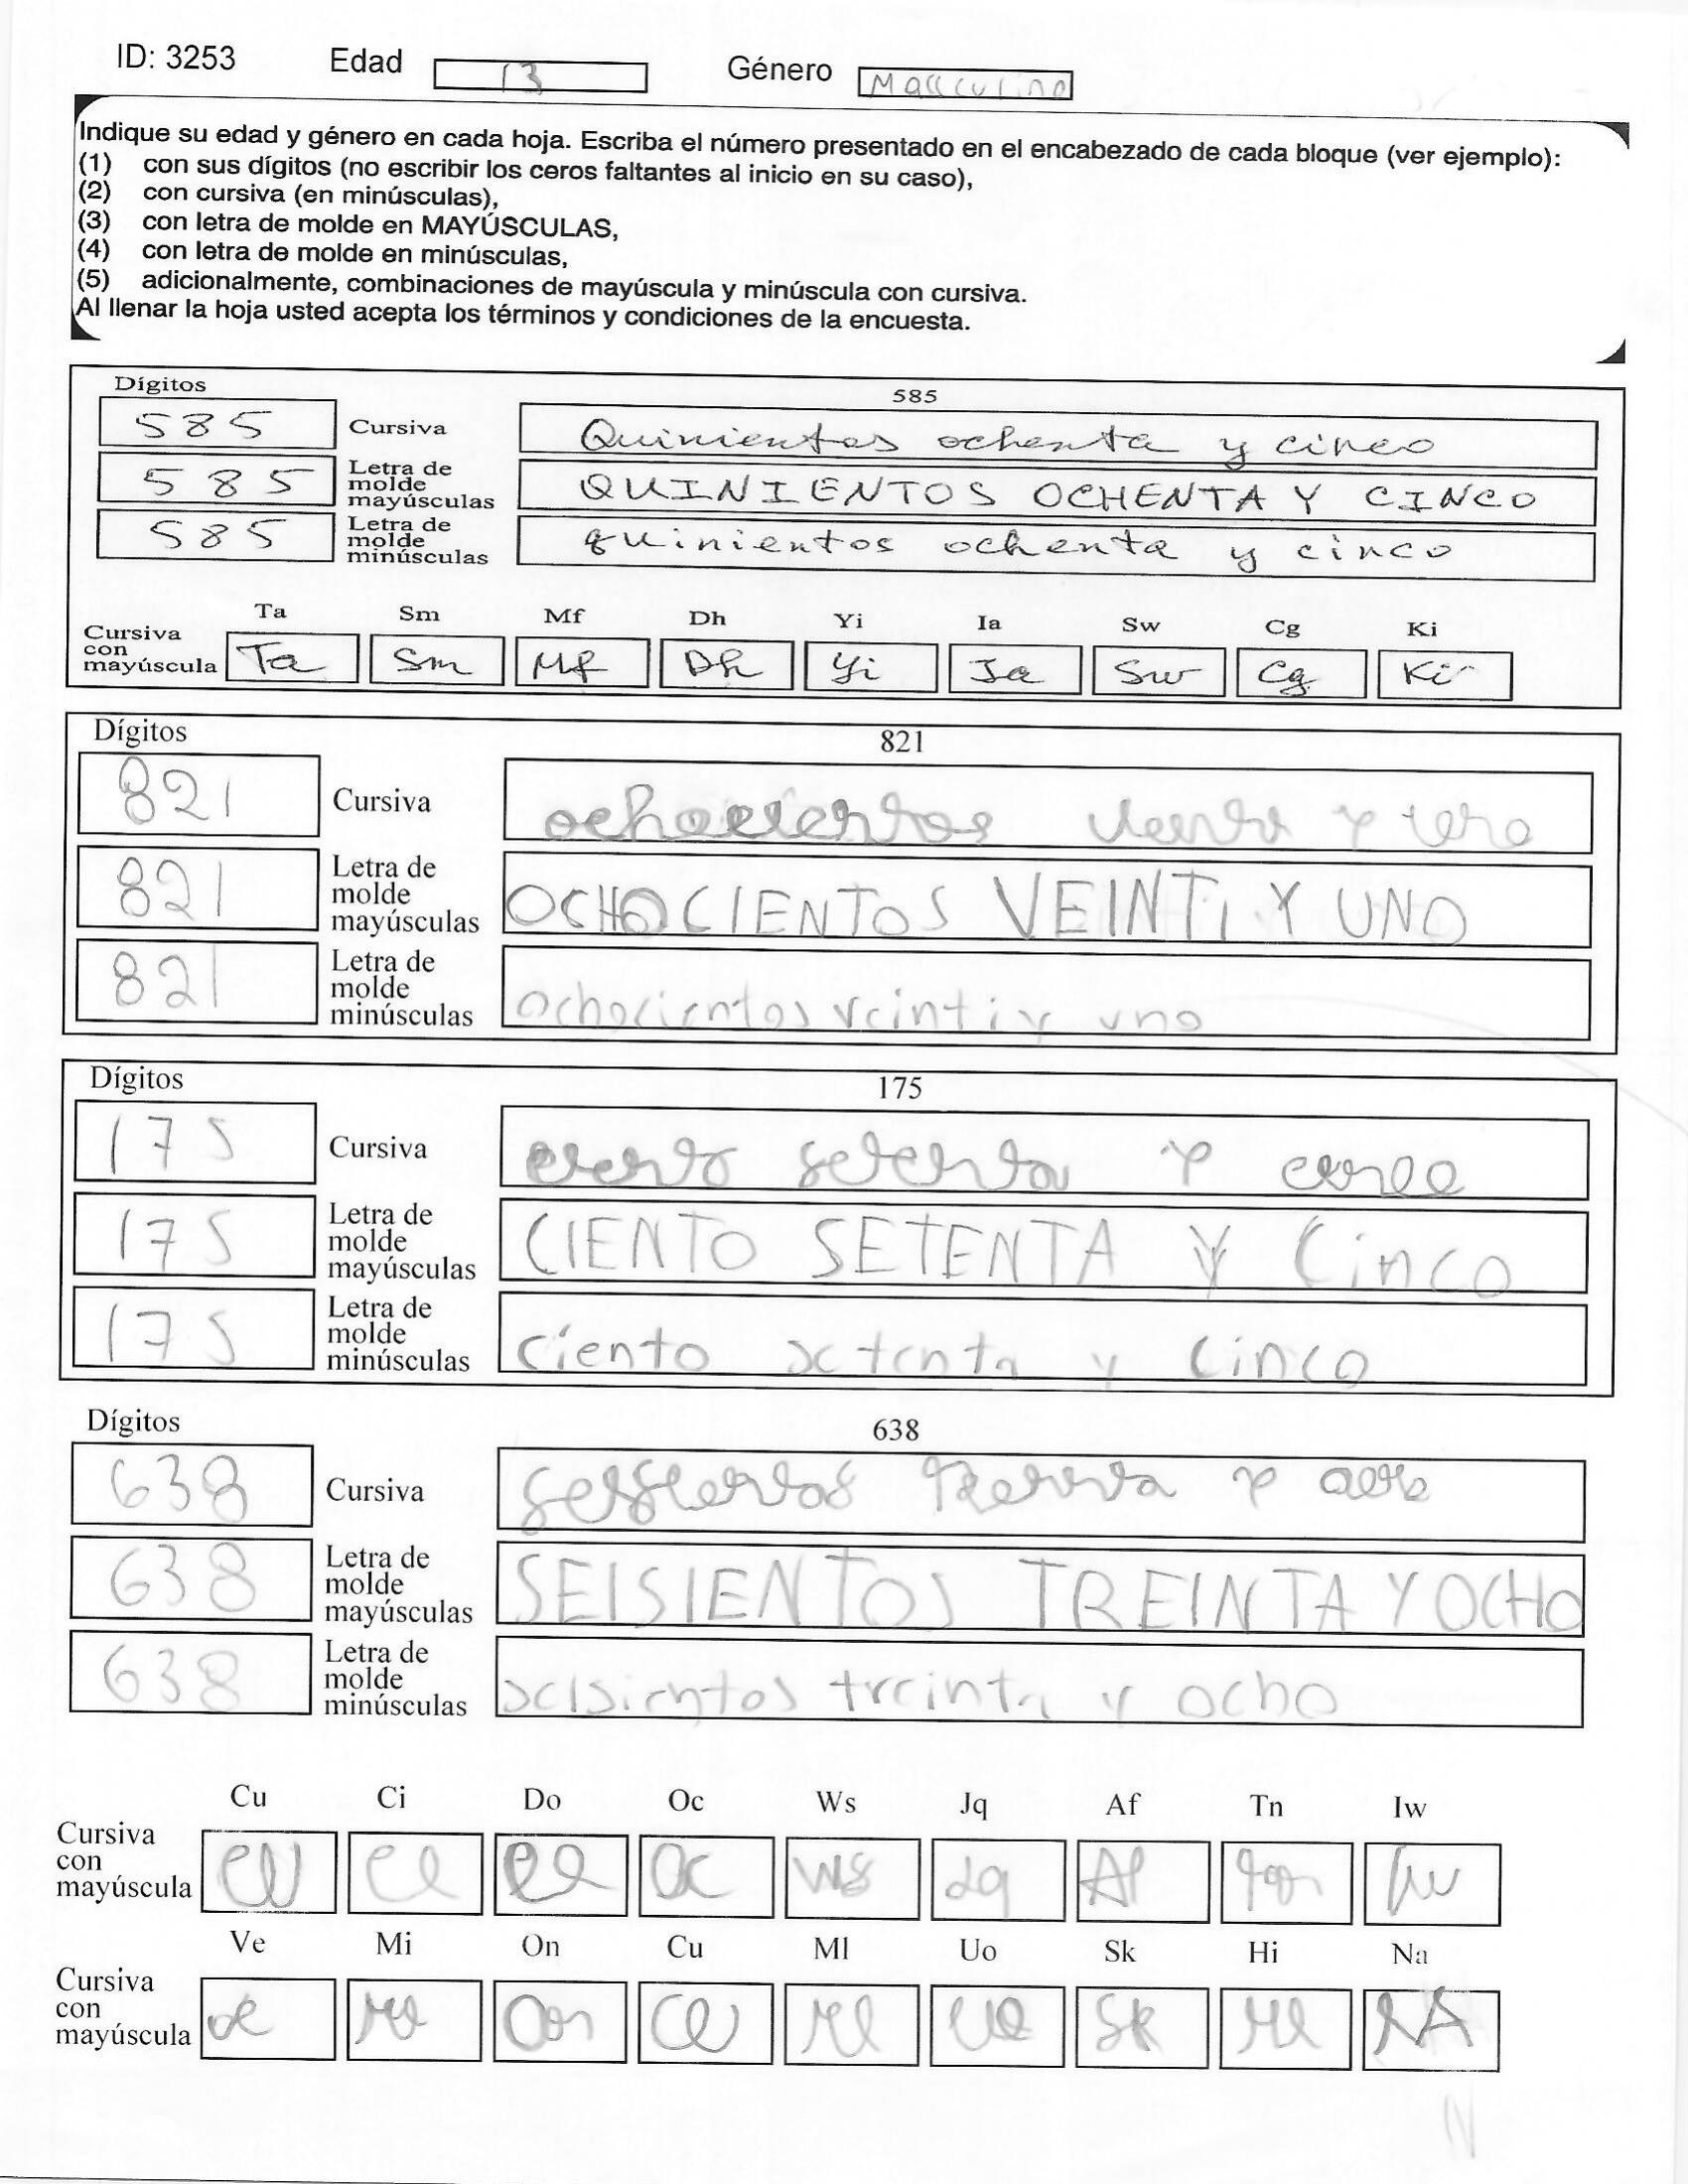 ID: 3253 Edad 13 Género Masculino
Indique su edad y género en cada hoja. Escriba el número presentado en el encabezado de cada bloque (ver ejemplo):
(1) con sus dígitos (no escribir los ceros faltantes al inicio en su caso),
(2) con cursiva (en minúsculas),
(3) con letra de molde en MAYÚSCULAS,
(4) con letra de molde en minúsculas,
(5) adicionalmente, combinaciones de mayúscula y minúscula con cursiva.
Al llenar la hoja usted acepta los términos y condiciones de la encuesta.
Dígitos 585
585 Cursiva Quinientos ochenta y cinco
585 Letra de molde mayúsculas QUINIENTOS OCHENTA Y CINCO
585 Letra de molde minúsculas quinientos ochenta y cinco
Ta Sm Mf Dh Yi Ia Sw Cg Ki
Cursiva con mayúscula Ta Sm Mf Dh Yi Ia Sw Cg Ki
Dígitos 821
821 Cursiva ochocientos y
821 Letra de molde mayúsculas OCHOCIENTOS VEINTi Y UNO
821 Letra de molde minúsculas ochocientos veinti y uno
Dígitos 175
175 Cursiva ciento setenta y
175 Letra de molde mayúsculas CIENTO SETENTA Y CinCO
175 Letra de molde minúsculas ciento setenta y cinco
Dígitos 638
638 Cursiva y
638 Letra de molde mayúsculas SEISIENTOS TREINTA Y OCHO
638 Letra de molde minúsculas seisientos treinta y ocho
Cu Ci Do Oc Ws Jq Af Tn Iw
Cursiva con mayúscula Cu Ci Oc Ws Jq Af Iw
Ve Mi On Cu Ml Uo Sk Hi Na
Cursiva con mayúscula Ve Mi On Cu Ml Uo Sk Hi NA
N